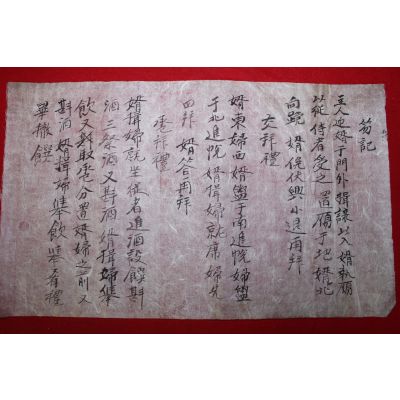 笏記
主人迎婿于門外揖讓以入 婿執鴈
以從 侍者受之 置鴈于地 婿北
向跪 婿俛伏興小退再拜
交拜禮
婿東婦西 婿盥于南進帨 婦盥
于北進帨 婿揖婦就席 婦先
四拜 婿答再拜
巹拜禮
婿揖婦就坐 從者進酒設饌斟
酒三祭酒 又斟酒 婿揖婦擧
飮 又斟取巹分置婿婦之前 又
斟酒 婿揖婦擧飮 擧肴 禮
畢撤饌